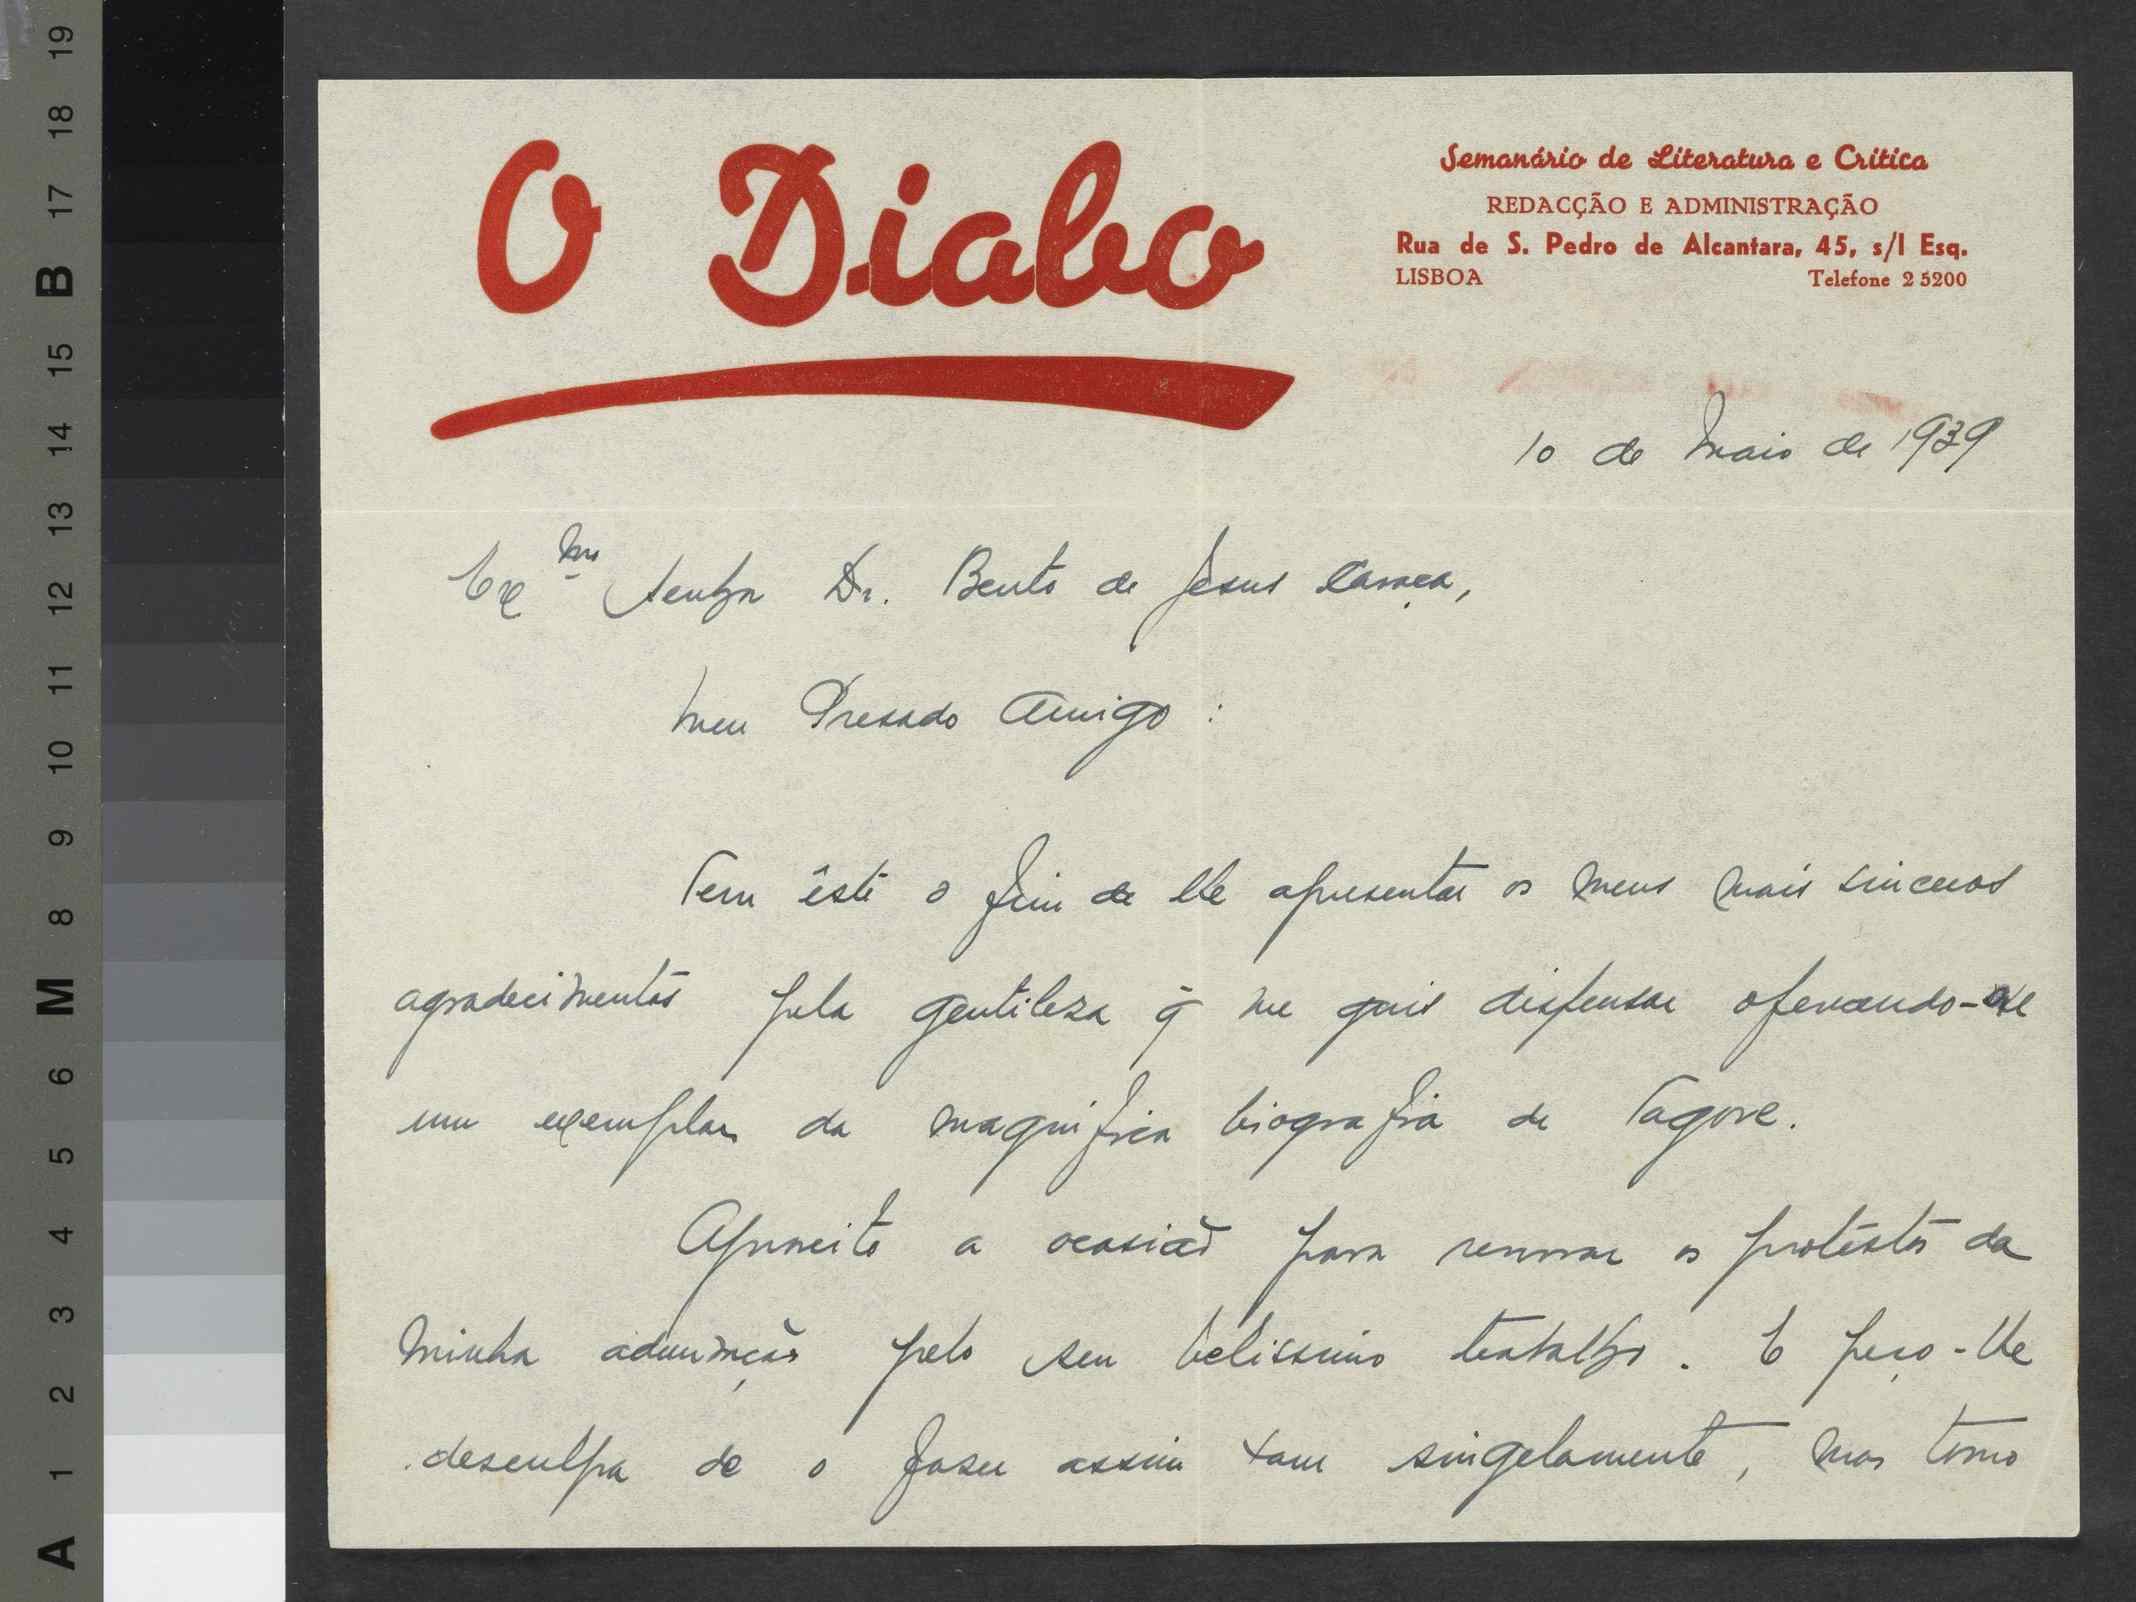 O Diabo
Semanário de Literatura e Crítica
REDACÇÃO E ADMINISTRAÇÃO
Rua de S. Pedro de Alcantara, 45, s/l Esq.
LISBOA Telefone 2 5200
10 de Maio de 1939
Exmo Senhor Dr. Bento de Jesus Caraça,
Meu Presado Amigo:
Tem êste o fim de lhe apresentar os meus mais sinceros
agradecimentos pela gentileza q̃ me quis dispensar oferecendo-me
um exemplar da magnífica biografia de Tagore.
Aproveito a ocasião para renovar os protestos da
minha admiração pelo seu belissimo trabalho. E peço-lhe
desculpa de o fazer assim tam singelamente, mas tomo
19
18
17
B
15
14
13
12
11
10
9
8
M
6
5
4
3
2
1
A